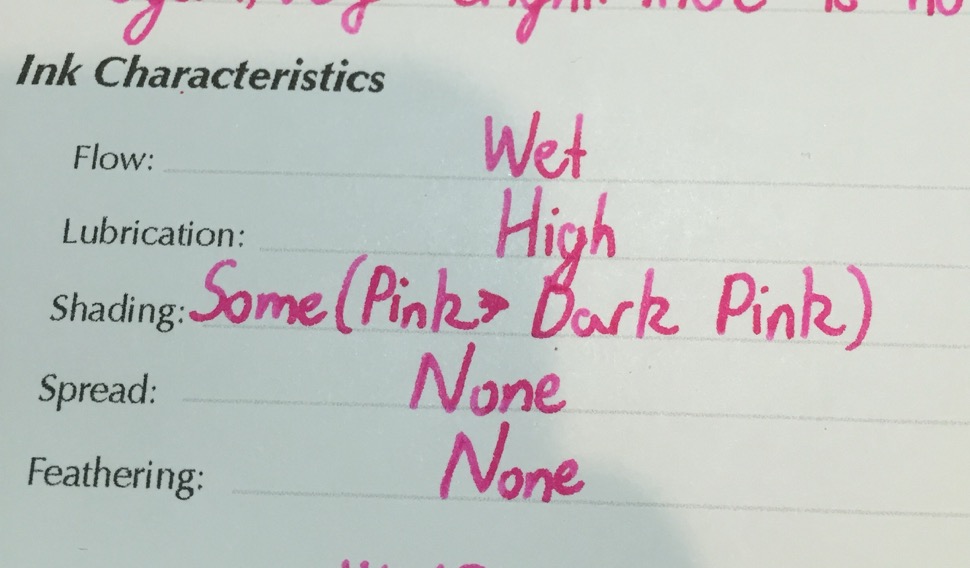 is no
Ink Characteristics
Flow: Wet
Lubrication: High
Shading: Some (Pink > Dark Pink)
Spread: None
Feathering: None